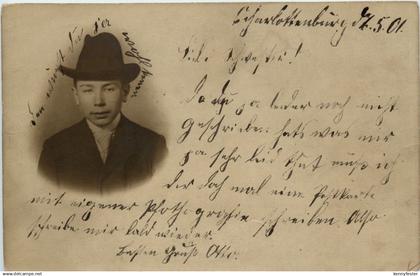 Charlottenburg d. 4.5.01.
Liebe Schwester!
Da du ja leider noch nicht
geschrieben hats was mir
ja sehr leid thut muss ich
dir doch mal eine Postkarte
mit eigener Photografie schreiben Also
schreibe mir bald wieder.
Besten Gruß Otto.
kennyfester